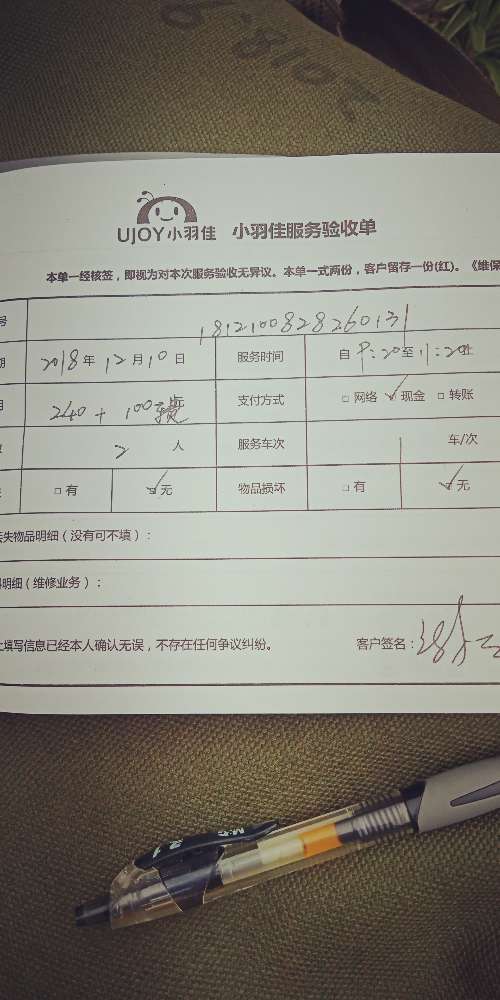 UJOY小羽佳 小羽佳服务验收单
本单一经核签，即视为对本次服务验收无异议。本单一式两份，客户留存一份(红)。《维保
号 1812100828260131
期 2018年12月10日 服务时间 自9:20至11:20止
240+100 支付方式 □网络 ✓现金 □转账
2人 服务车次 车/次
□有 ✓无 物品损坏 □有 ✓无
失物品明细（没有可不填）：
明细（维修业务）：
填写信息已经本人确认无误，不存在任何争议纠纷。 客户签名：
M&G